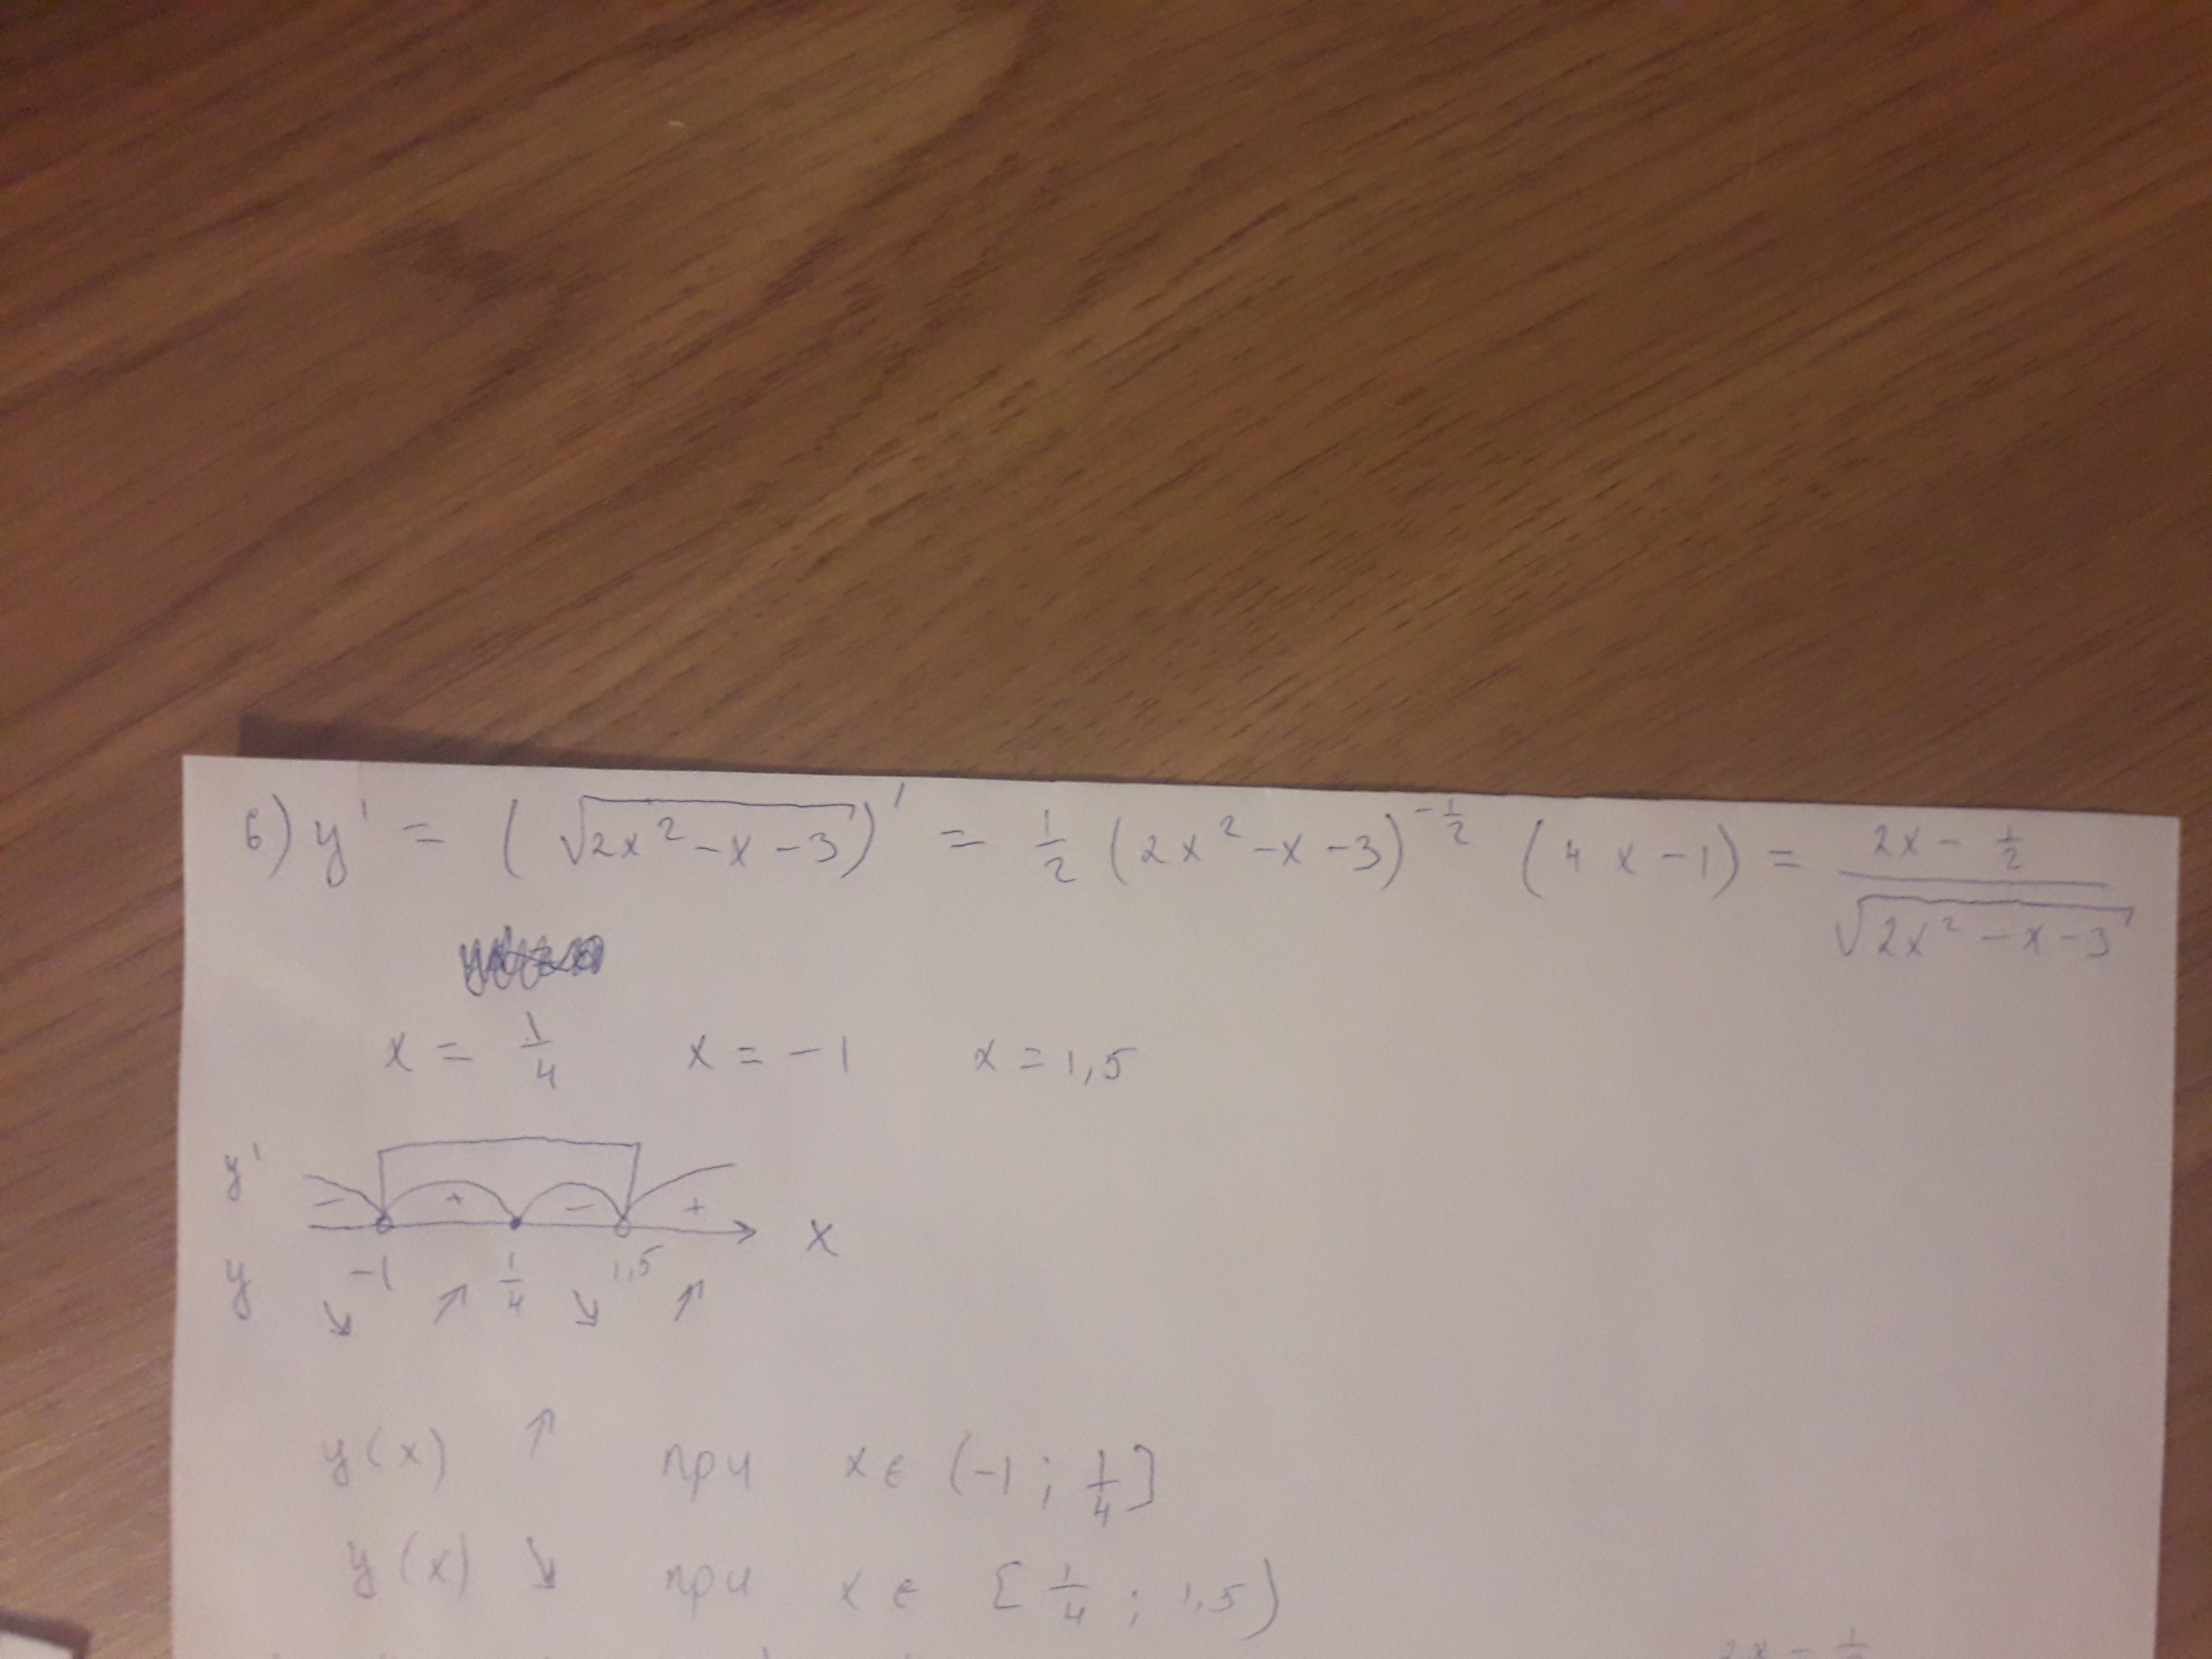 6) y' = (√(2x² - x - 3))' = 1/2 (2x² - x - 3)^(-1/2) (4x - 1) = (2x - 1/2)/√(2x² - x - 3)
x = 1/4 x = -1 x = 1,5
y' - + - + x
y -1 1/4 1,5
↘ ↗ ↘ ↗
y(x) ↑ при x ∈ (-1 ; 1/4]
y(x) ↘ при x ∈ [1/4 ; 1,5)
2x - 1